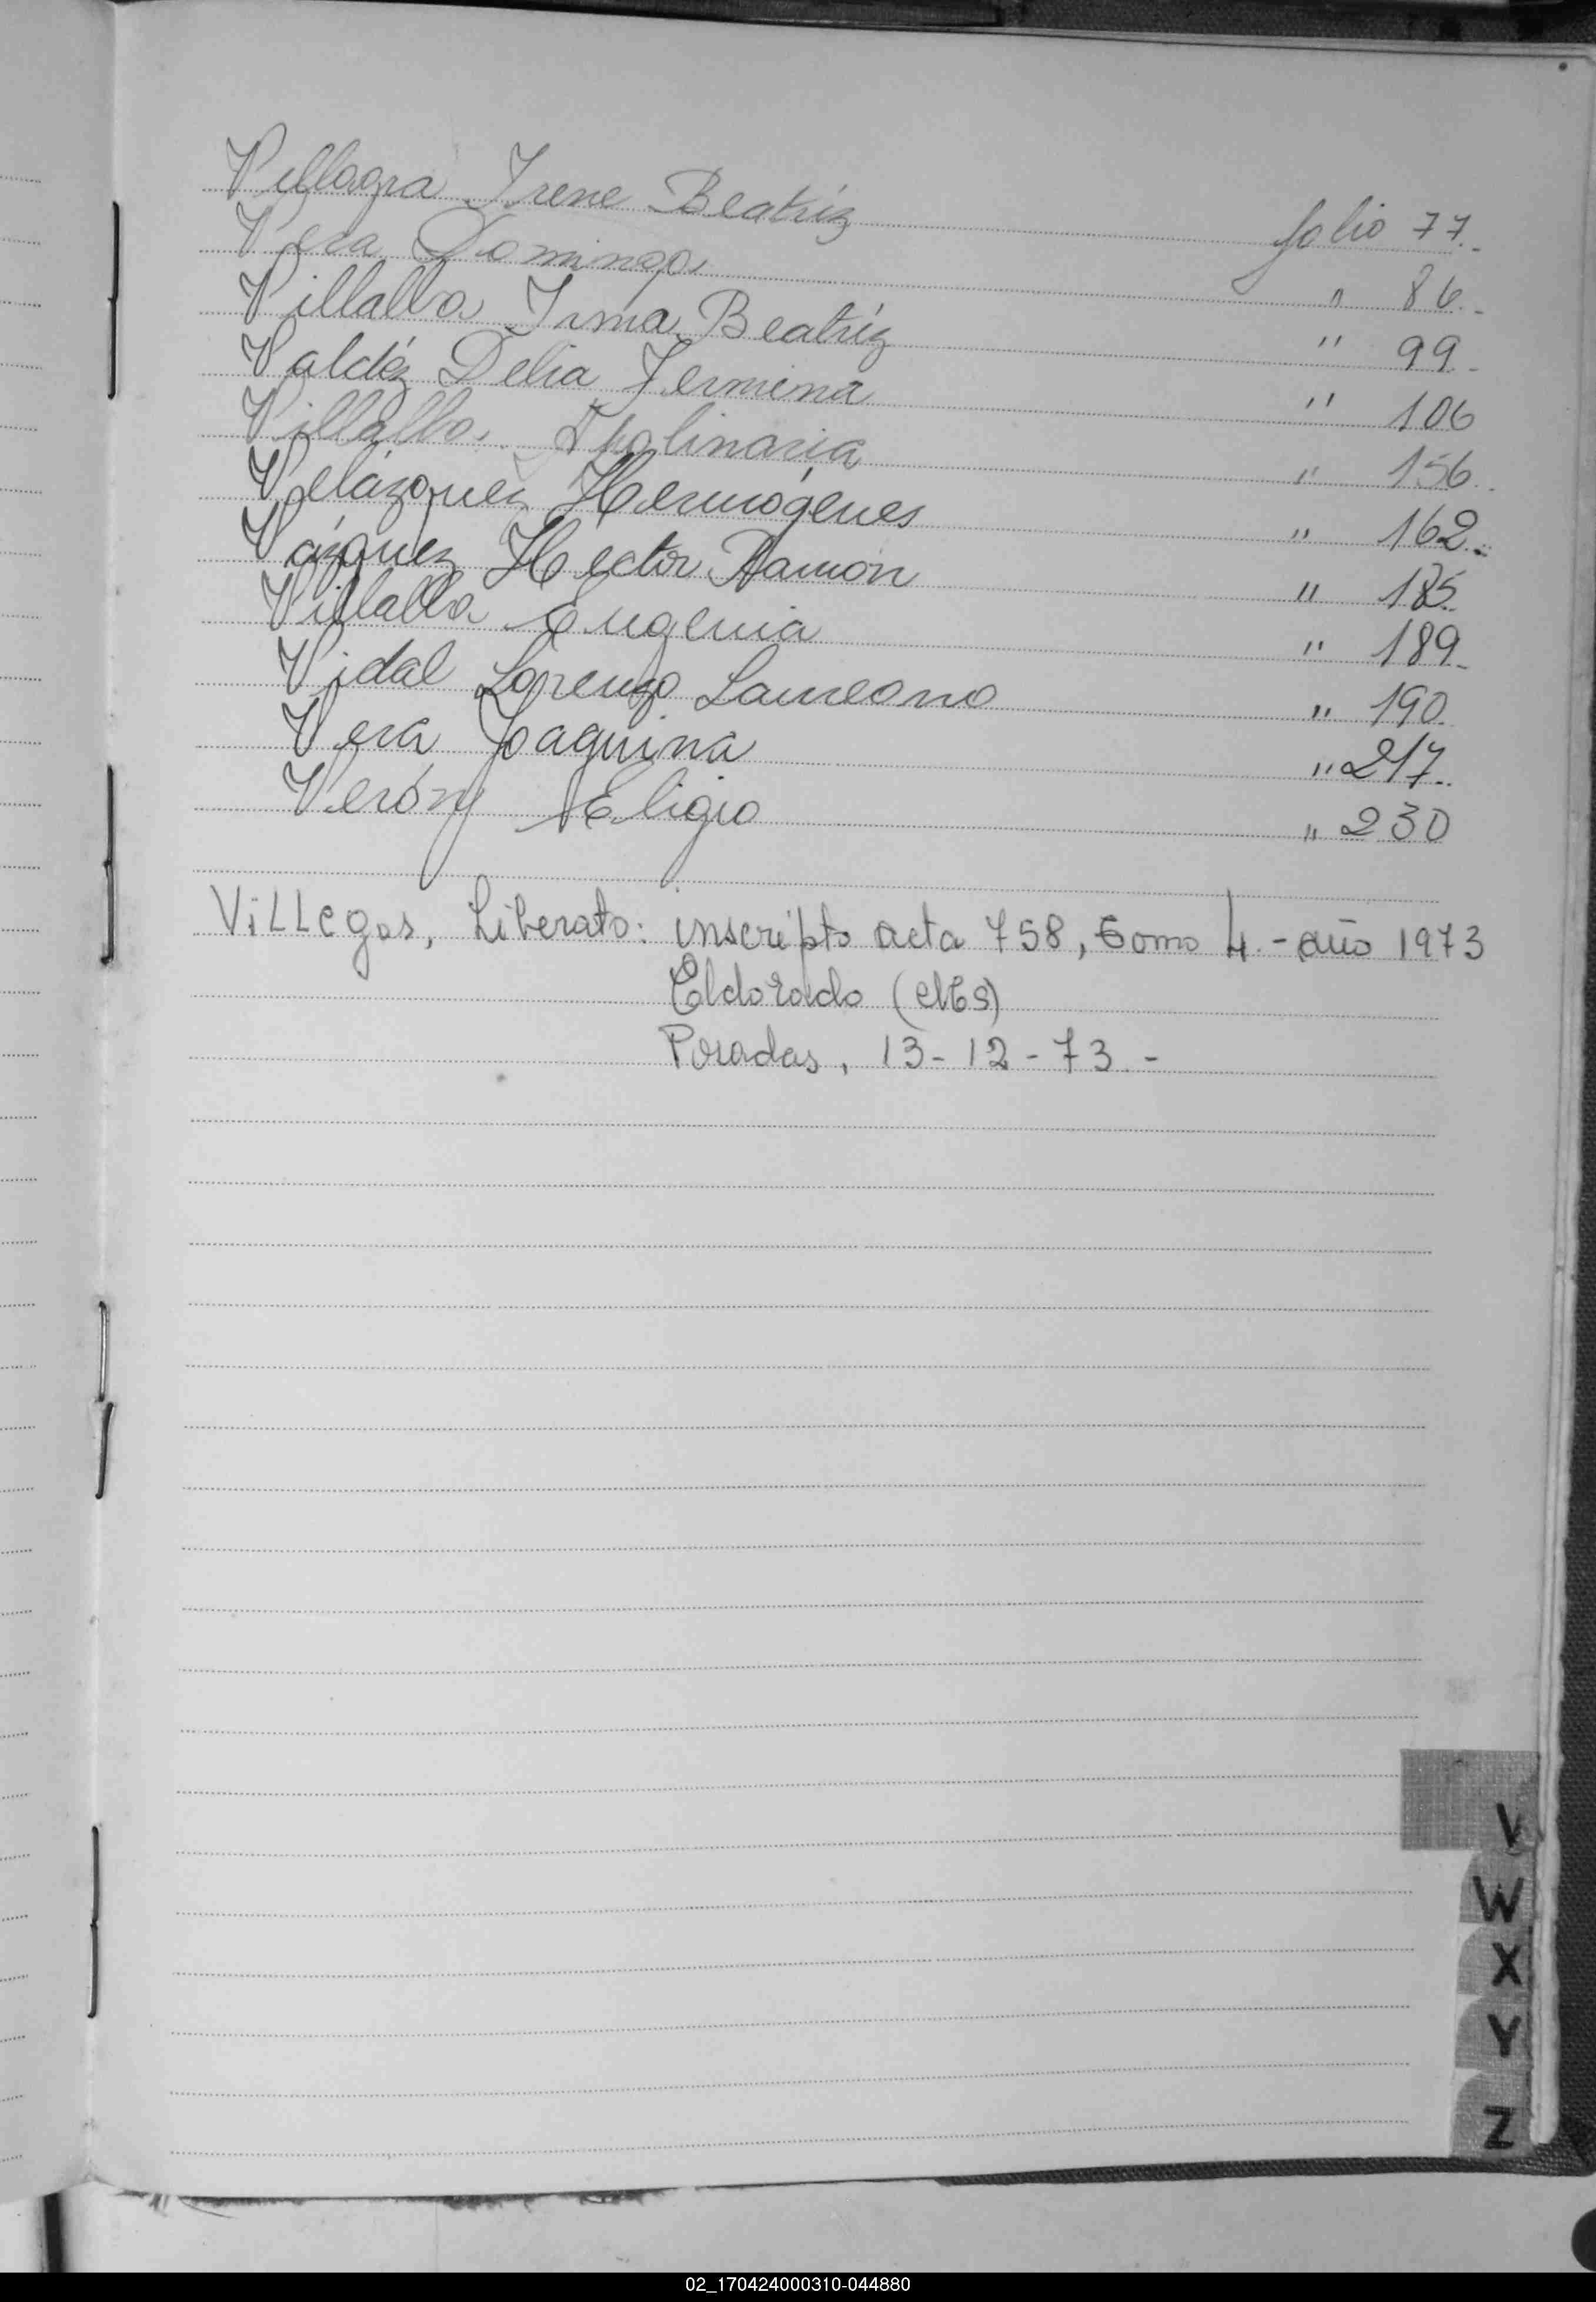 Villagra Irene Beatríz folio 77.-
Vera Domingo " 86.-
Villalba Irma Beatríz " 99.-
Valdéz Delia Fermina " 106
Villalba Apolinaria " 156.
Velázquez Hermógenes " 162.-
Vázquez Hector Ramón " 185.
Villalba Eugenia " 189.-
Vidal Lorenzo Laureano " 190.
Vera Joaquina " 217.
Verón Eligio " 230
Villegas, Liberato: inscripto acta 758, Tomo 4.- año 1973
Eldorado (Mes)
Posadas, 13-12-73.-
V
W
X
Y
Z
02_170424000310-044880